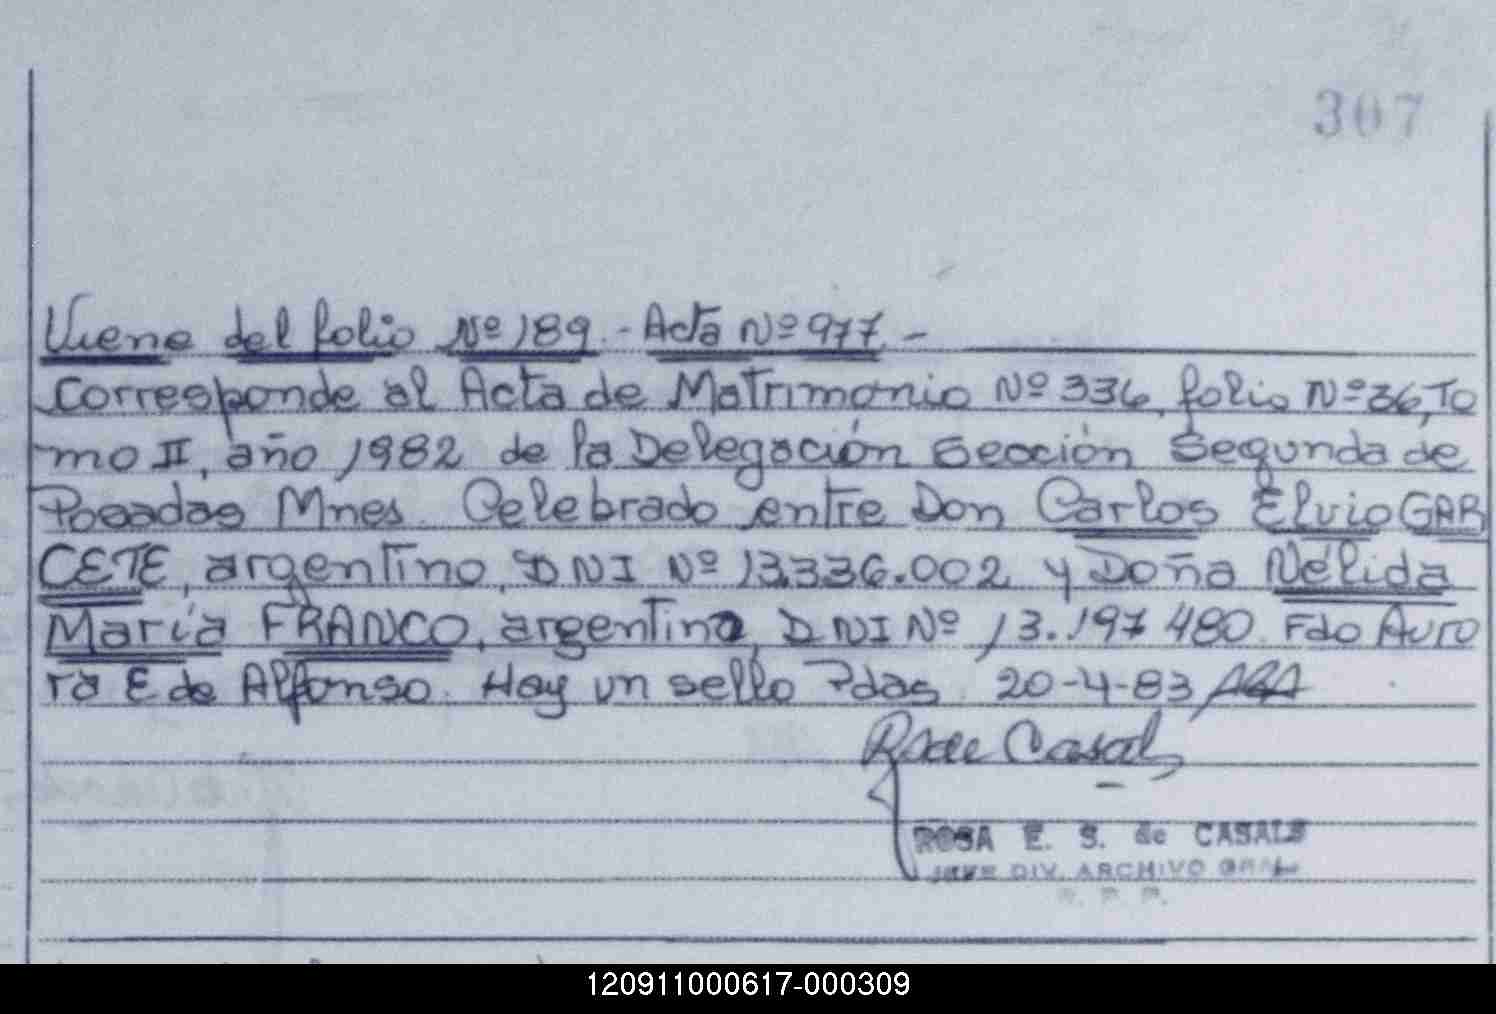 307
Viene del folio Nº 189.- Acta Nº 977.-
Corresponde al Acta de Matrimonio Nº 336, folio Nº 36, To
mo II, año 1982 de la Delegación Sección Segunda de
Posadas Mnes. Celebrado entre Don Carlos Elvio GAR
CETE, argentino, DNI Nº 13.336.002 y Doña Nélida
María FRANCO, argentina, DNI Nº 13.197.480. Fdo Auro
ra E de Alfonso. Hay un sello Pdas. 20-4-83
Casals
ROSA E. S. de CASALS
JEFE DIV. ARCHIVO GRAL
R. P. P.
120911000617-000309